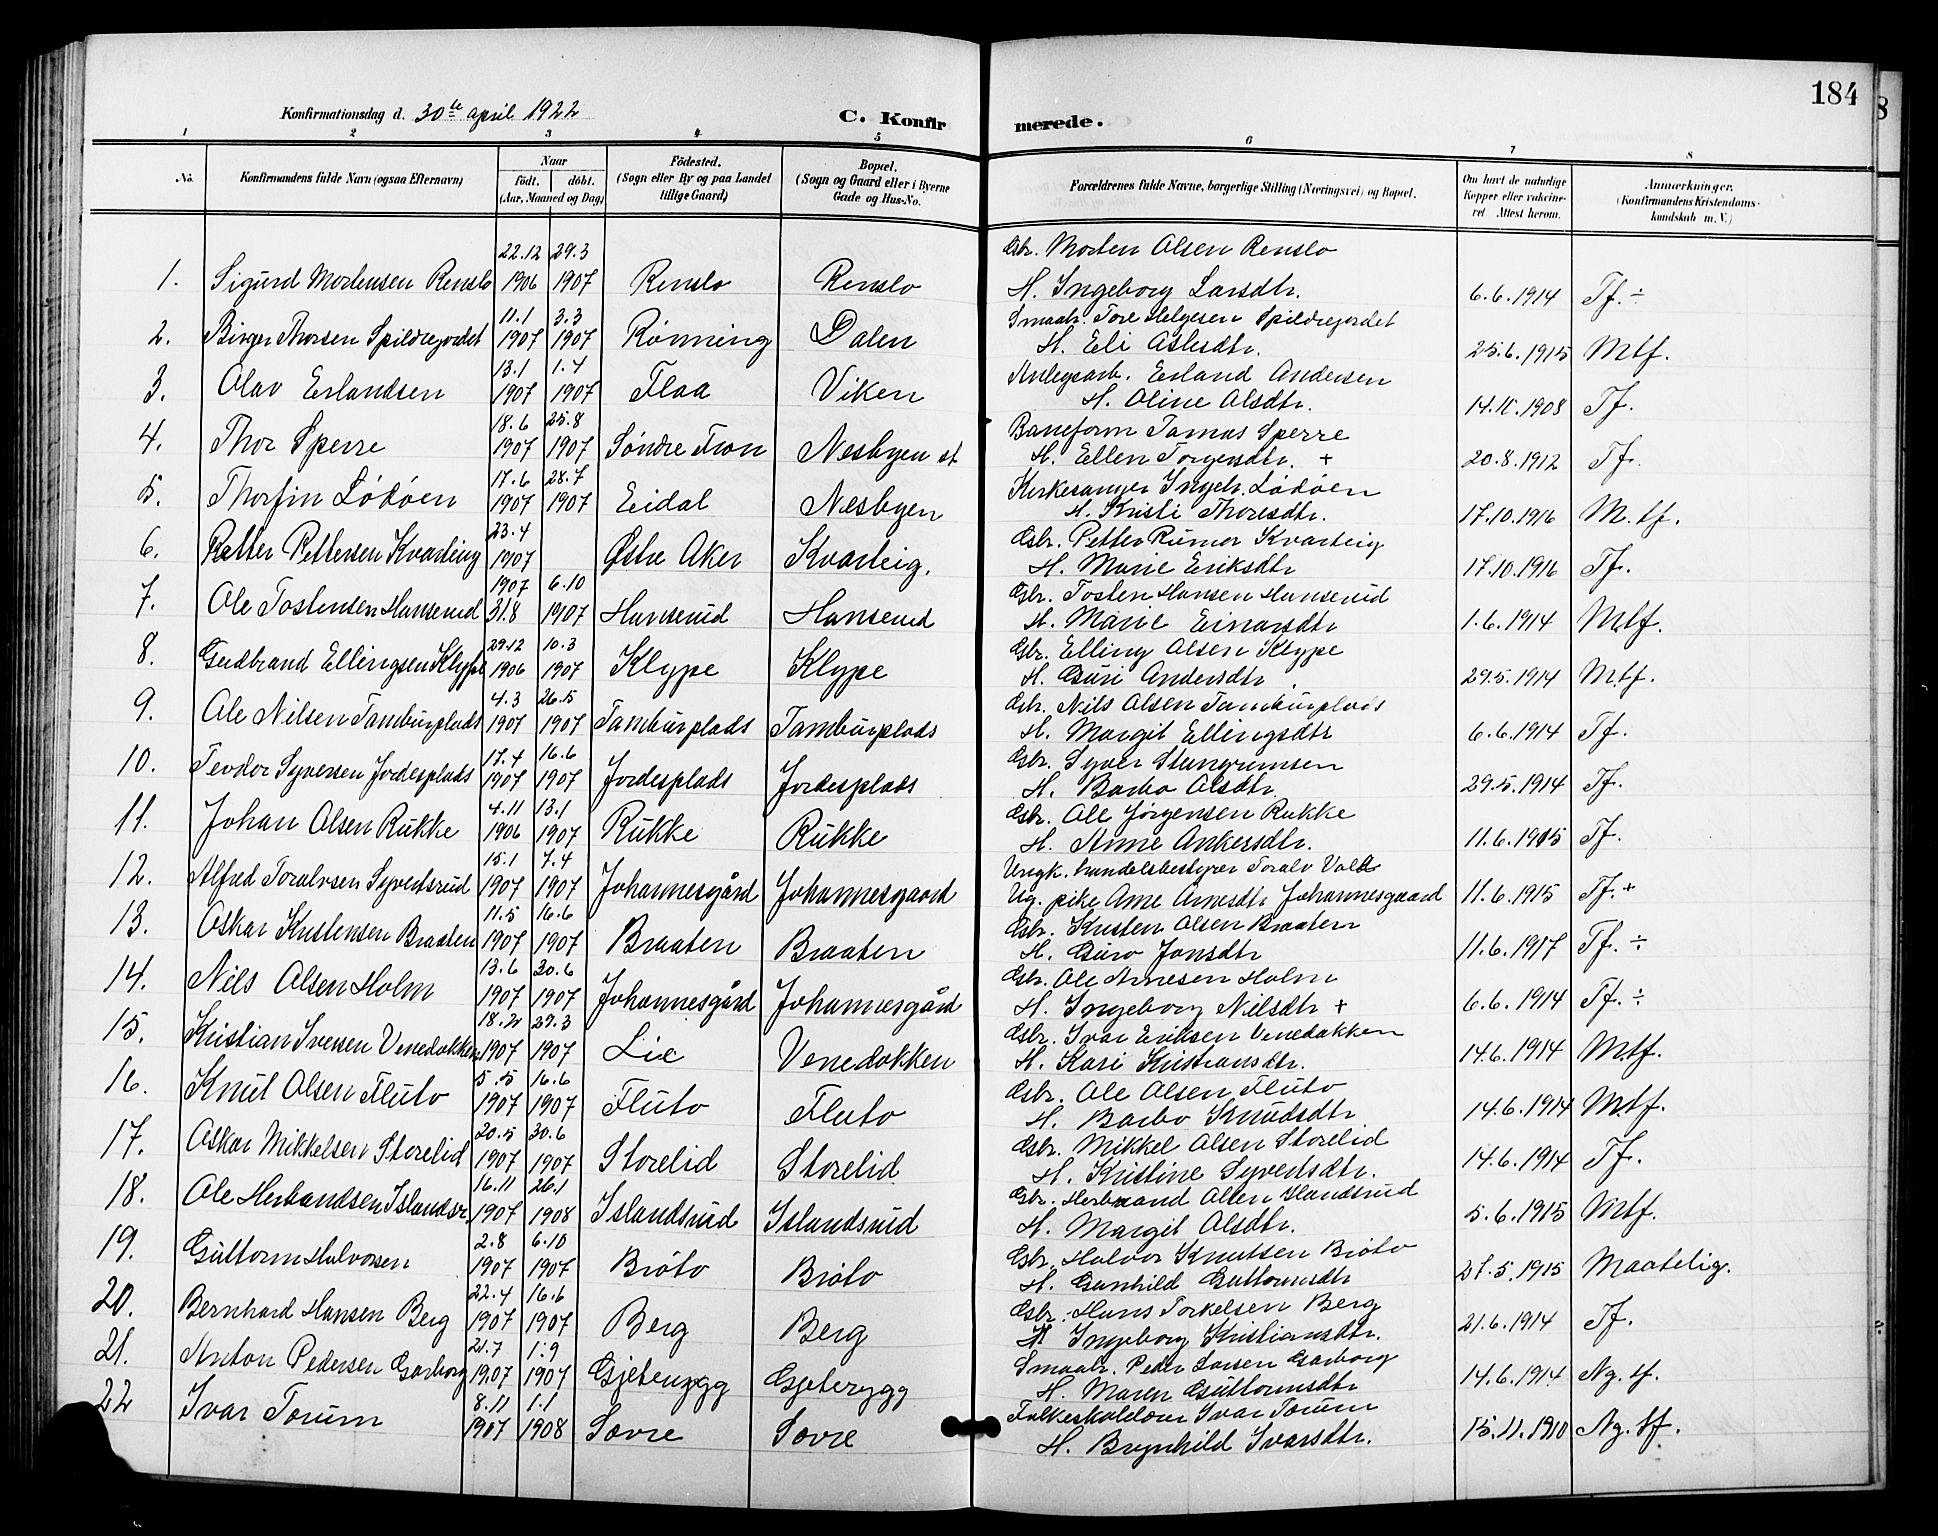 184
Konfirmationsdag d. 30te april 1922
C. Konfirmerede.
1 2 3 4 5 6 7 8
No. Konfirmandens fulde Navn (ogsaa Efternavn) Naar födt. döbt. (Aar, Maaned og Dag) Födested. (Sogn eller By og paa Landet tillige Gaard) Bopæl. (Sogn og Gaard eller i Byerne Gade og Hus-No. Forældrenes fulde Navne, borgerlige Stilling (Næringsvei) og Bopæl. Om havt de naturlige Kopper eller vakcineret Attest herom. Anmærkninger. (Konfirmandens Kristendomskundskab m. V.)
1. Sigurd Mortensen Renslo 22.12 1906 29.3 1907 Renslo Renslo Gbr. Morten Olsen Renslo
H. Ingeborg Larsdtr. 6.6.1914 Tf. ÷
2. Birger Thorsen Spildregjordet 11.1 1907 3.3 1907 Rönning Dalen Smaabr. Tore Helgesen Spildregjordet
H. Eli Aslesdtr. 25.6.1915 Mtf.
3. Olav Erlandsen 13.1 1907 1.4 1907 Flaa Viken Anlegsarb. Erland Andersen
H. Oline Olsdtr. 1908 Tf.
4. Thor Sperre 18.6 1907 25.8 1907 Söndre Fron Nesbyen st. Baneform Tomas Sperre
H. Ellen Torgersdtr. + 20.8.1912 Tf.
5. Thorfin Lödöen 17.6 1907 28.7 1907 Eidal Nesbyen Kirkesanger Ingebr. Lödöen
H. Kristi Thoresdtr. 17.10.1916 M.tf.
6. Petter Pettersen Kvarteig 23.4 1907 Östre Aker Kvarteig. Gbr. Petter Kvarteig
H. Marie Eriksdtr 17.10.1916 Tf.
7. Ole Tostensen Hanserud 1907 31.8 6.10 1907 Hanserud Hanserud Gbr. Tosten Hansen Hanserud
H. Marie Einarsdtr 1.6.1914 Mtf.
8. Gudbrand Ellingsen Klype 29.12 1906 10.3 1907 Klype Klype Gbr. Elling Olsen Klype
H. Guri Andersdtr. 29.5.1914 Mtf.
9. Ole Nilsen Tamburplads 4.3 1907 26.5 1907 Tamburplads Tamburplads Gbr. Nils Olsen Tamburplads
H. Margit Ellingsdtr 6.6.1914 Tf.
10. Teodor Syversen Jordesplads 17.4 1907 16.6 1907 Jordesplads Jordesplads Gbr. Syver Stengrimsen
H. Barbo Olsdtr. 29.5.1914 Tf.
11. Johan Olsen Rukke 4.11 1906 13.1 1907 Rukke Rukke Gbr. Ole Jörgensen Rukke
H. Anne Ankersdtr. 11.6.1915 Tf.
12. Alfred Toralvsen Syvertsrud 15.1 1907 7.4 1907 Johannesgård Johannesgaard Ungk. handelsbestyrer Toralv Vold
Ug. pike Ane Arnesdtr Johannesgaard 11.6.1915 Tf. +
13. Oskar Kristensen Braaten 11.5 1907 16.6 1907 Braaten Braaten Gbr. Kristen Olsen Braaten
H. Guro Jonsdtr 11.6.1917 Tf. ÷
14. Nils Olsen Holm 13.6 1907 20.6 1907 Johannesgård Johannesgård Gbr. Ole Arnesen Holm
H. Ingeborg Nilsdtr + 6.6.1914 Tf. ÷
15. Kristian Iversen Venedokken 18.2 1907 29.3 1907 Lie Venedokken Gbr. Ivar Eriksen Venedokken
H. Kari Kristiansdtr. 14.6.1914 Mtf.
16. Knut Olsen Fluto 5.5 1907 16.6 1907 Fluto Fluto Gbr. Ole Olsen Fluto
H. Barbo Knudsdtr 14.6.1914 Mtf.
17. Oskar Mikkelsen Storelid 20.5 1907 30.6 1907 Storelid Storelid Gbr. Mikkel Olsen Storelid
H. Kristine Syvertsdtr. 14.6.1914 Tf.
18. Ole Herbrandsen 16.11 1907 26.1 1908 Islandsrud Islandsrud Gbr. Herbrand Olsen Islandsrud
H. Margit Olsdtr. 5.6.1915 Mtf.
19. Guttorm Halvorsen 2.8 1907 6.10 1907 Bröto Bröto Gbr. Halvor Knutsen Bröto
H. Gunhild Guttormsdtr 27.5.1915 Maatelig.
20. Bernhard Hansen Berg 22.4 1907 16.6 1907 Berg Berg Gbr. Hans Torkelsen Berg
H Ingeborg Kristiansdtr. 21.6.1914 Tf.
21. Anton Pedersen Garborg 21.7 1907 1.9 1907 Gjeterygg Gjeterygg Smaabr. Peder Larsen Garborg
H. Maren Guttormsdtr 14.6.1914 Ng. tf.
22 Ivar Torum 8.11 1907 1.1 1908 Sovre Sovre Folkeskolelærer Ivar Torum
H. Brynhild Ivarsdtr. 15.11.1910 Ng. tf.